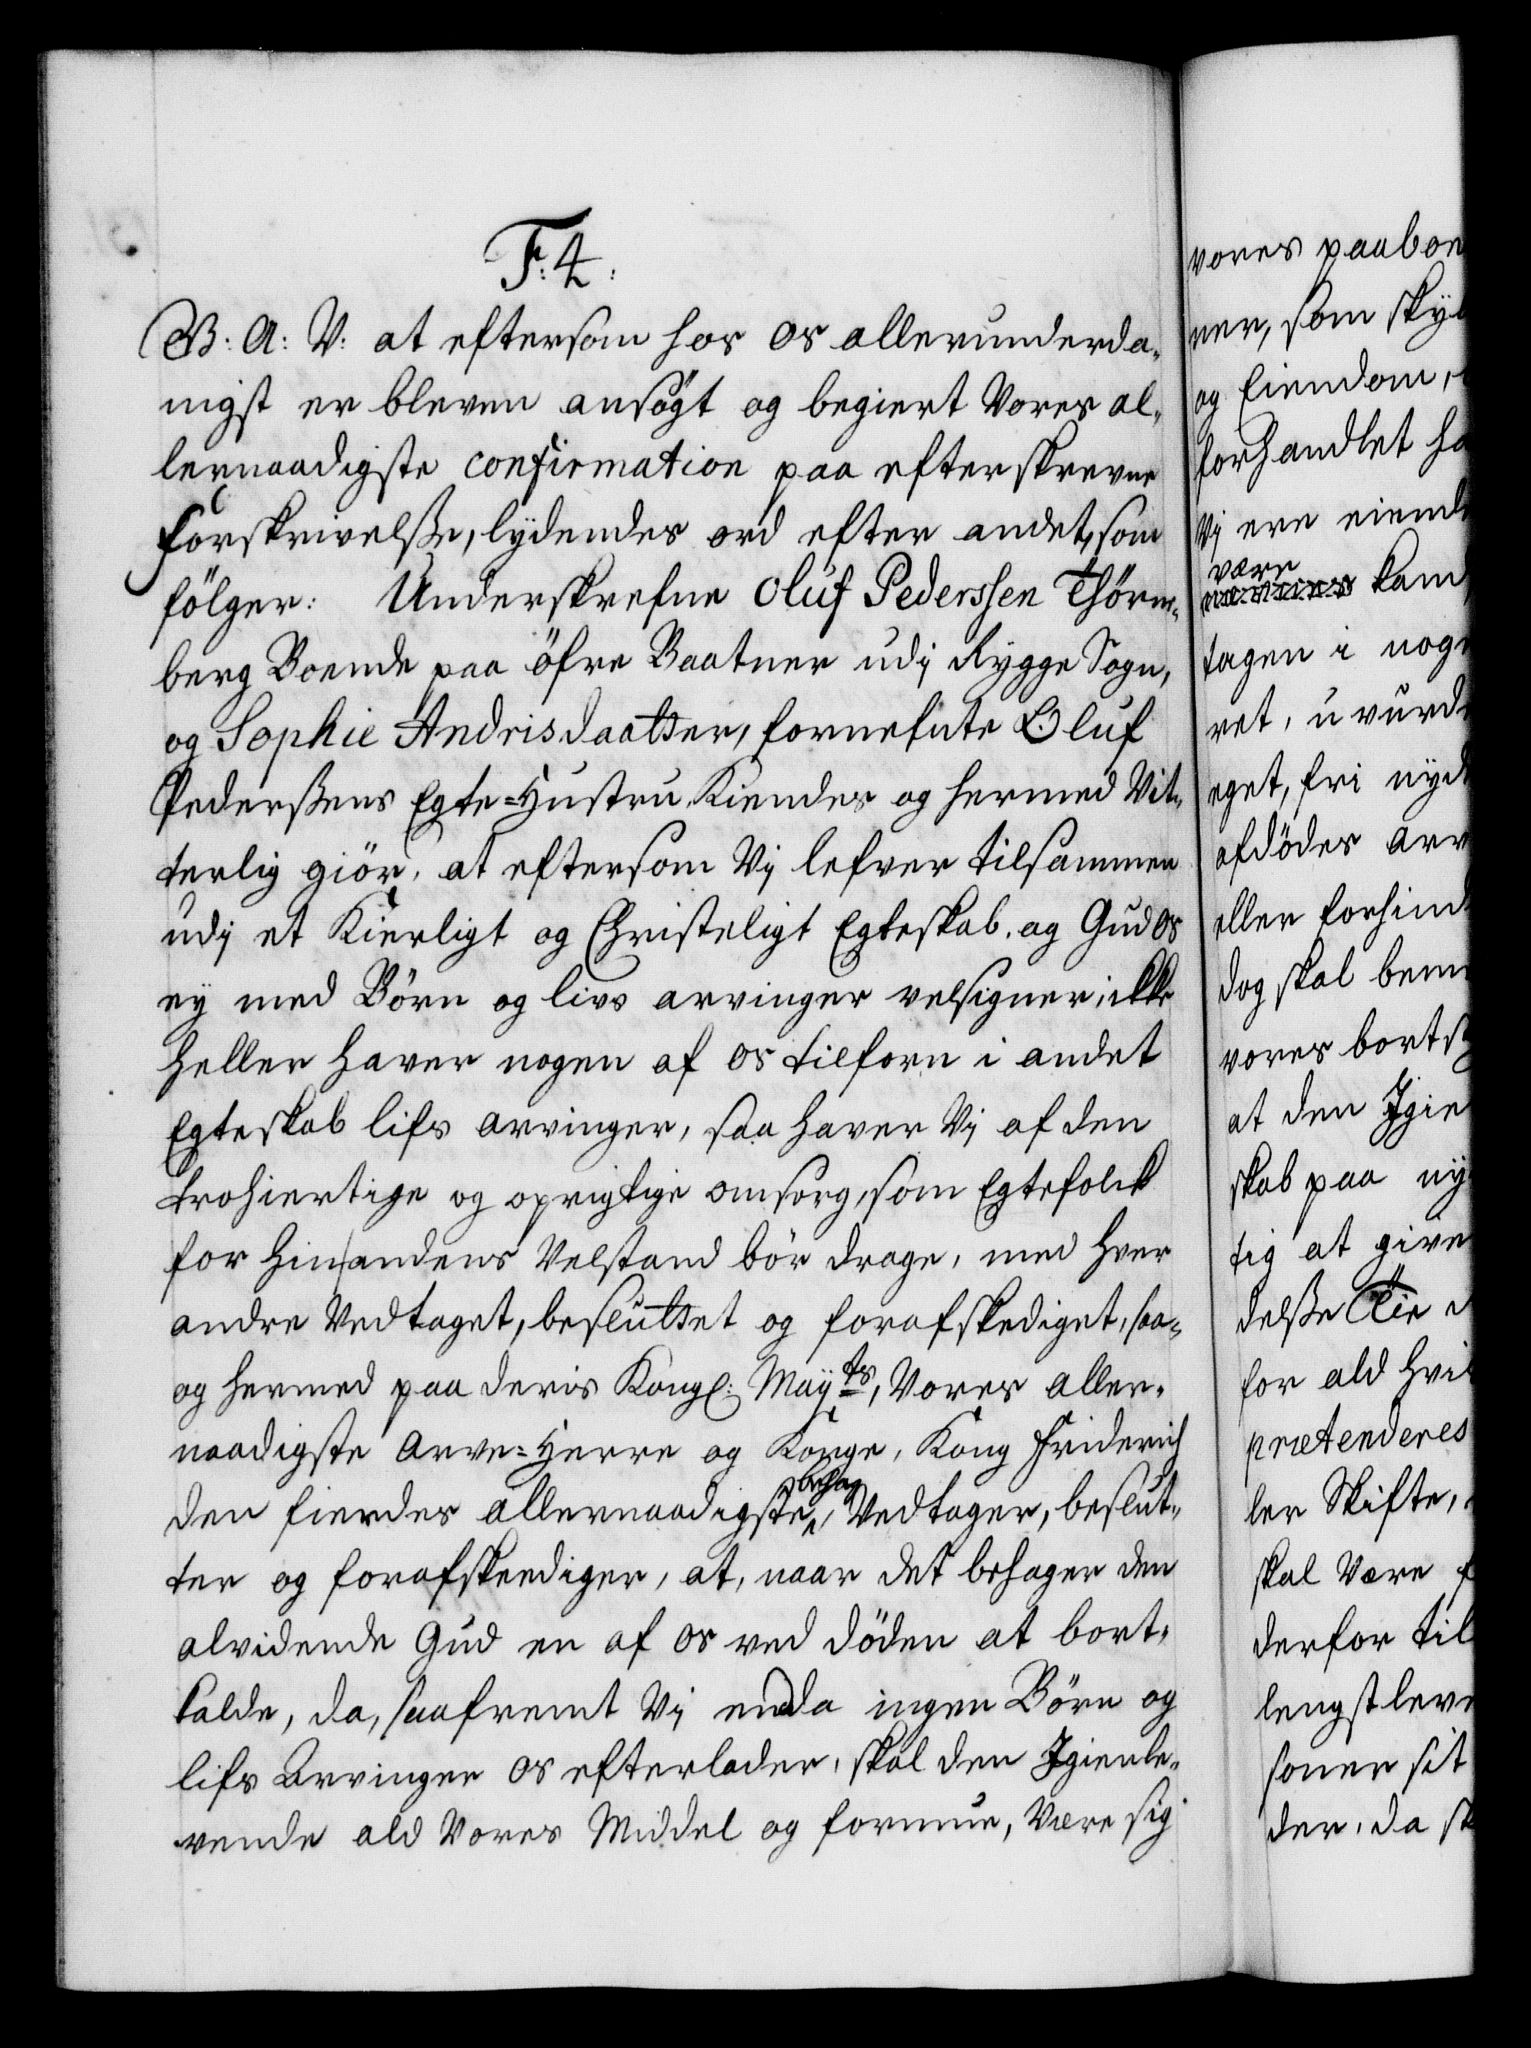 F: 4:
G: A: V: at eftersom hos os allerunderda-
nigst er bleven ansøgt og begiert Vores al-
lernaadigste confirmation paa efterskrevne
forskrivelsse, lydendes ord efter andet, som
følger: Underskrefne Oluf Pederssen Thörn-
berg Boende paa øfre Baatner udj Rygge Sogn,
og Sophie Andrisdaatter, fornefnte Oluf
Pederssens Egte-Hustru Kiendes og hermed Vit-
terlig giør, at eftersom Vij lefver tilsammen
udj et Kierligt og Christeligt Egteskab, og Gud os
ey med Børn og livs arvinger velsigner, ikke
heller haver nogen af os tilforn i andet
Egteskab lifs arvinger, saa haver Vj af den
trohiertige og oprigtige omsorg, som Egtefolck
for hinandens Velstand bør drage, med hver
andre Vedtaget, besluttet og forafskediget, saa-
og hermed paa deris Kongl: Mayts, Vores aller-
naadigste Arve-Herre og Konge, Kong Friderich
den fierdes allernaadigste behag, Vedtager, beslut-
ter og forafskeediger, at, naar det behager den
alvidende Gud en af os ved døden at bort-
kalde, da, saafremt Vj enda ingen Børn og
lifs Arvinger os efterlader, skal den Igienle-
vende ald Vores Middel og formue, Være sig
vores paaboe
ner, som sky
og Eiendom,
forhandlet ha
Vj ere eiend
være
kand
tagen i nog
ret, u vurd
eget, fri nyd
afdødes arv
eller forhind
dog skal bem
vores bort
at den Igie
skab paa ny
tig at give
delsse
for ald hvi
prætenderes
ler Skifte,
skal Være f
derfor til
lengstlev
soner sit
der, da sk